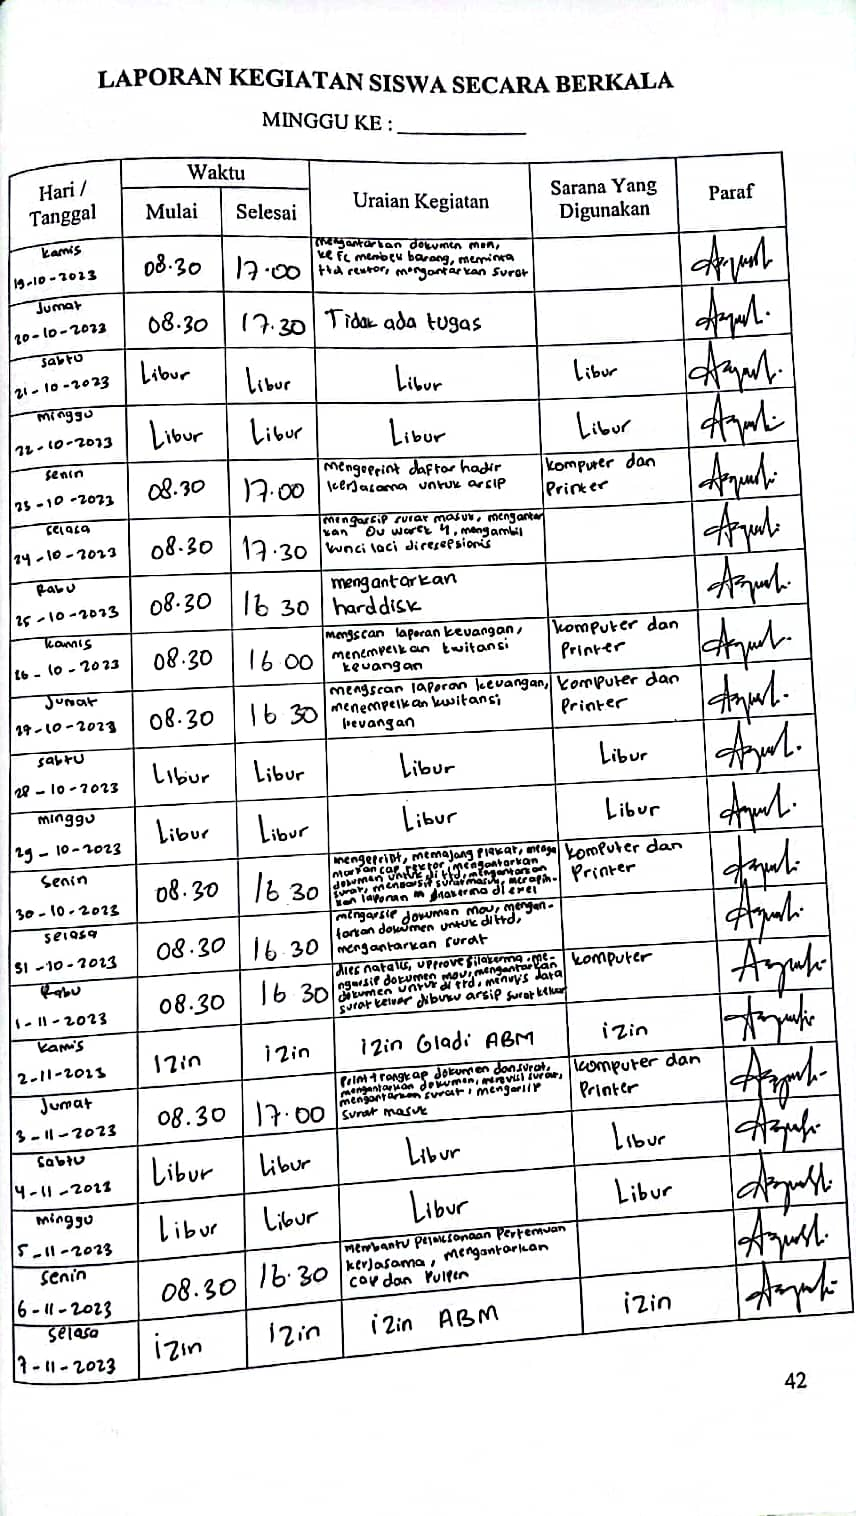 LAPORAN KEGIATAN SISWA SECARA BERKALA
MINGGU KE : ____________
Hari / Tanggal Waktu Uraian Kegiatan Sarana Yang Digunakan Paraf
Mulai Selesai
Kamis
19-10-2023 08.30 17.00
mengantarkan dokumen mou,
ke fc membeli barang, meminta
ttd rektor, mengantarkan surat
Jumat
20-10-2023 08.30 17.30 Tidak ada tugas
Sabtu
21-10-2023 Libur Libur Libur Libur
Minggu
22-10-2023 Libur Libur Libur Libur
Senin
23-10-2023 08.30 17.00
mengeprint daftar hadir
kerjasama untuk arsip
komputer dan
Printer
Selasa
24-10-2023 08.30 17.30
mengarsip surat masuk, mengantar
kan mengambil
kunci laci diresepsionis
Rabu
25-10-2023 08.30 16 30
mengantarkan
harddisk
Kamis
26-10-2023 08.30 16 00
mengscan laporan keuangan,
menempelkan kwitansi
keuangan
komputer dan
Printer
Jumat
27-10-2023 08.30 16 30
mengscan laporan keuangan,
menempelkan kwitansi
keuangan
komputer dan
Printer
Sabtu
28-10-2023 Libur Libur Libur Libur
minggu
29-10-2023 Libur Libur Libur Libur
Senin
30-10-2023 08.30 16 30
mengeprint, memajang plakat,
cap rektor, mengantarkan
dokumen untuk di ttd, mengantarkan
surat, mengarsip surat masuk,
kan laporan
komputer dan
Printer
Selasa
31-10-2023 08.30 16.30
mengarsip dokumen mou, mengan-
tarkan dokumen untuk di ttd,
mengantarkan surat
Rabu
1-11-2023 08.30 16 30
dies natalis, me-
ngarsip dokumen mou, mengantarkan
dokumen untuk di ttd, menulis data
surat keluar dibuku arsip surat keluar
komputer
Kamis
2-11-2023 Izin izin izin Gladi ABM izin
Jumat
3-11-2023 08.30 17.00
Print 4 rangkap dokumen dan surat,
mengantarkan dokumen, merevisi surat,
mengantarkan surat, mengarsip
surat masuk
komputer dan
Printer
Sabtu
4-11-2023 Libur Libur Libur Libur
minggu
5-11-2023 Libur Libur Libur Libur
Senin
6-11-2023 08.30 16.30
Membantu pelaksanaan pertemuan
kerjasama, mengantarkan
cap dan pulpen
Selasa
7-11-2023 izin Izin izin ABM izin
42